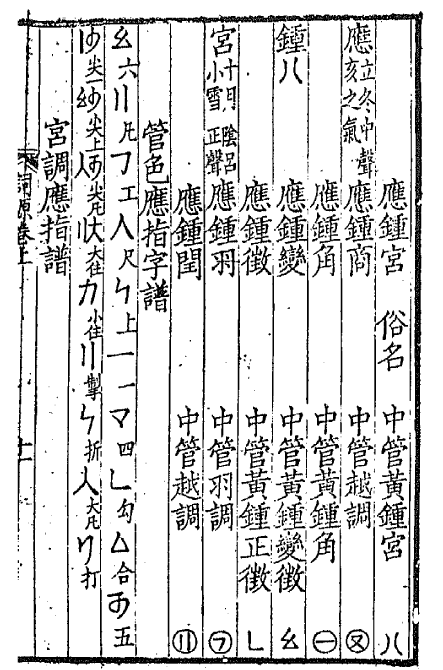 應鍾宮 俗名 中管黃鍾宮 八
應 立冬中聲 亥之氣 應鍾商 中管越調 ㊁
應鍾角 中管黃鍾角 ㊀
鍾 八 應鍾變 中管黃鍾變徵 幺
應鍾徵 中管黃鍾正徵 ㄴ
宮 十月 陰呂 小雪 正聲 應鍾羽 中管羽調 ㋐
應鍾閏 中管越調 ⑪
管色應指字譜
幺六 〢凡 ㄱ工 人尺 ㄣ上 一一 マ四 ㄴ勾 厶合 五
尖一 尖上 尖凡 大住 力小住 〢掣 ㄣ折 人大凡 打
宮調應指譜
詞源卷上 十一